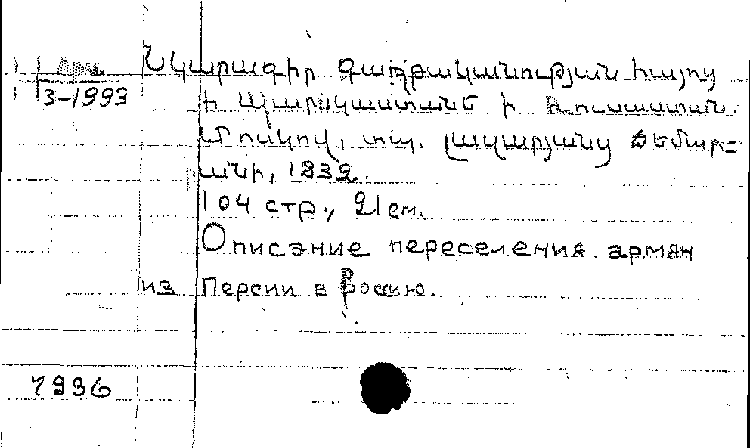 Արм.
3-1993
Նկարագիր գաղթականութեան հայոց
ի Պարսկաստանէ ի Ռուսաստան.
Մոսկով, տպ. Լազարյանց ճեմար-
անի, 1832.
104 стр., 21 см.
Описание переселения армян
из Персии в Россию.
7996